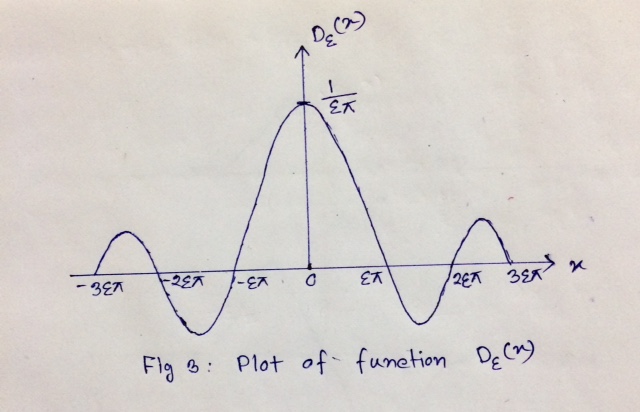 Dε(x)
1/επ
-3επ -2επ -επ 0 επ 2επ 3επ x
Fig 3: Plot of function Dε(x)